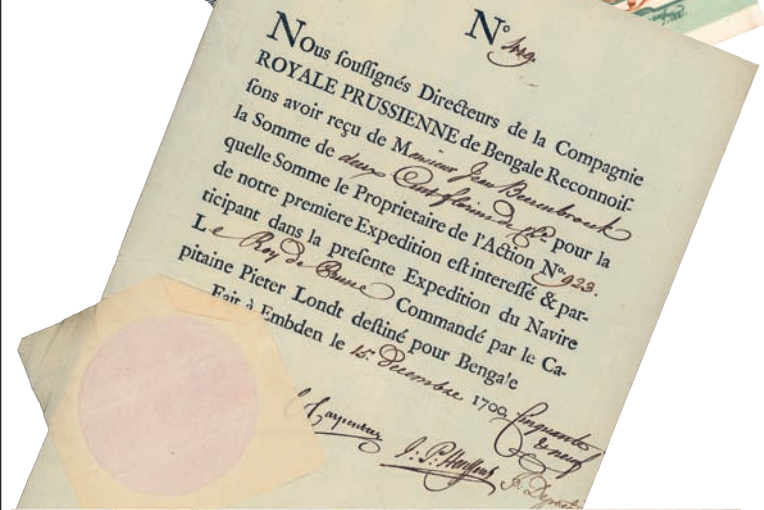 N°
Nous souſſignés Directeurs de la Compagnie
ROYALE PRUSSIENNE de Bengale Reconnoiſ-
ſons avoir reçu de Monsieur Jean Beerenbrouck
la Somme de deux Cent florins de pour la
quelle Somme le Proprietaire de l'Action N° 923.
de notre premiere Expedition eſt intereſſé & par-
ticipant dans la preſente Expedition du Navire
Le Roy de Prusse Commandé par le Ca-
pitaine Pieter Londt deſtiné pour Bengale
Fait à Embden le 15. Decembre 1700. Cinquante
& neuf
Carpentier